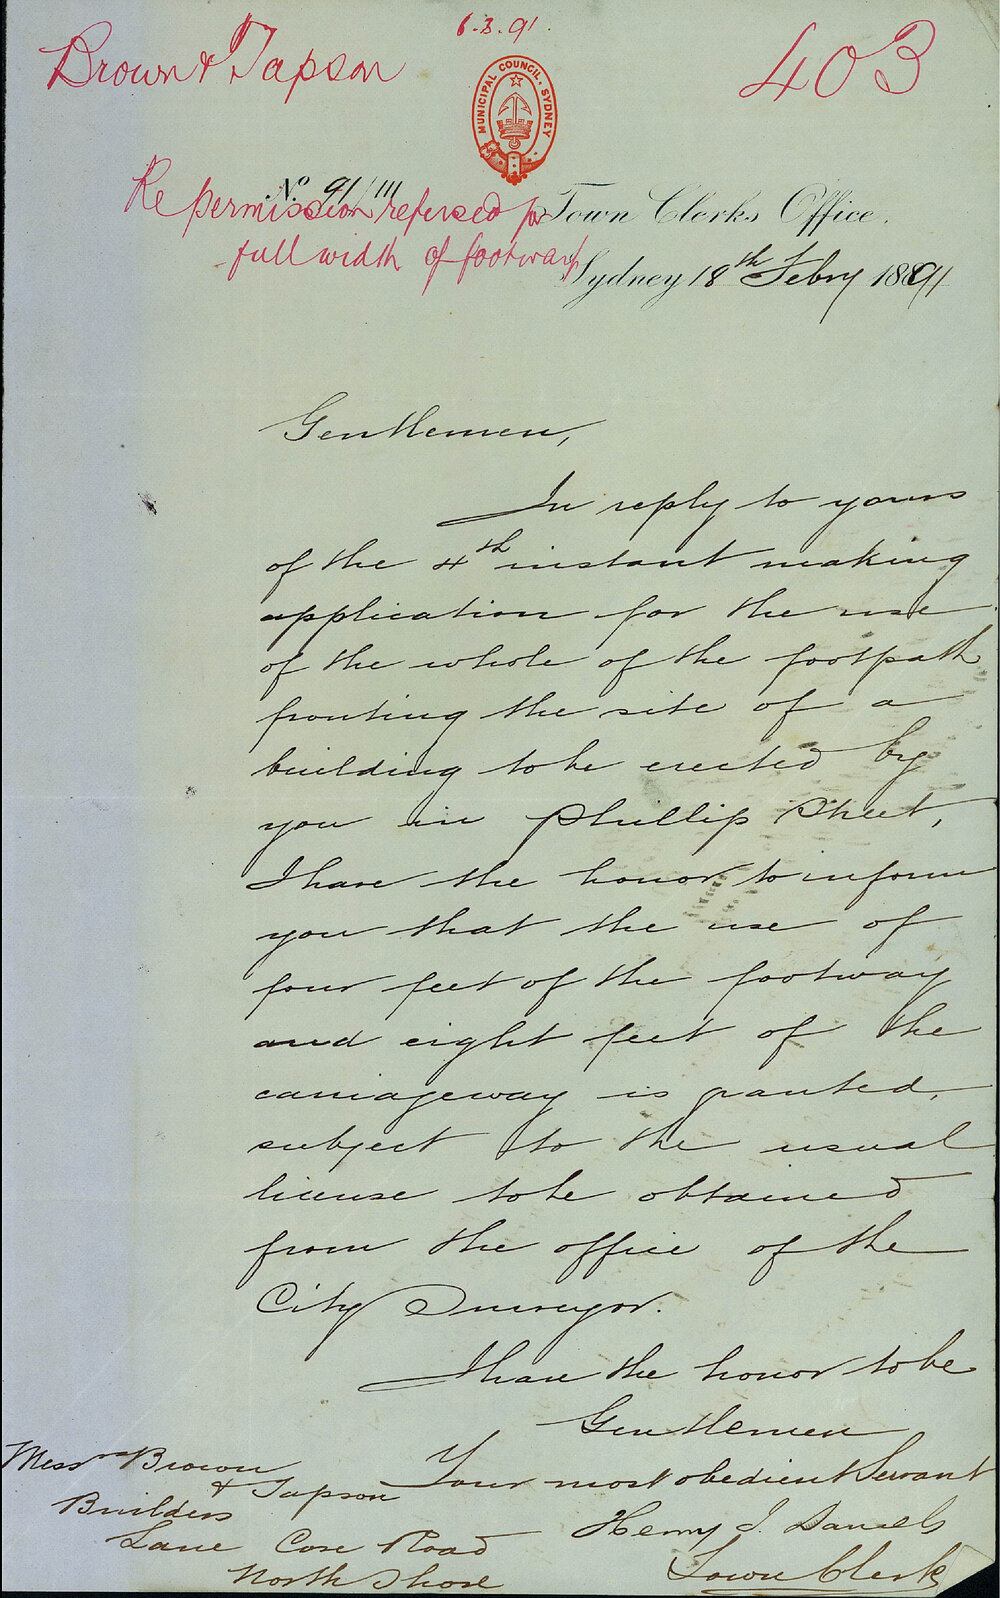 6.3.91.
Brown & Tapson
403
MUNICIPAL COUNCIL, SYDNEY
No. 91/111
Re permission refersed for
full width of footway
Town Clerks Office.
Sydney 18th Febry 1891
Gentlemen,
In reply to yours
of the 4th instant making
application for the use
of the whole of the footpath
fronting the site of a
building to be erected by
you in Phillip Street,
I have the honor to inform
you that the use of
four feet of the footway
and eight feet of the
carriageway is granted,
subject to the usual
license to be obtained
from the office of the
City Surveyor.
I have the honor to be
Gentlemen
Your most obedient Servant
Henry J. Daniels
Town Clerk
Messrs Brown
& Tapson
Builders
Lane Cove Road
North Shore